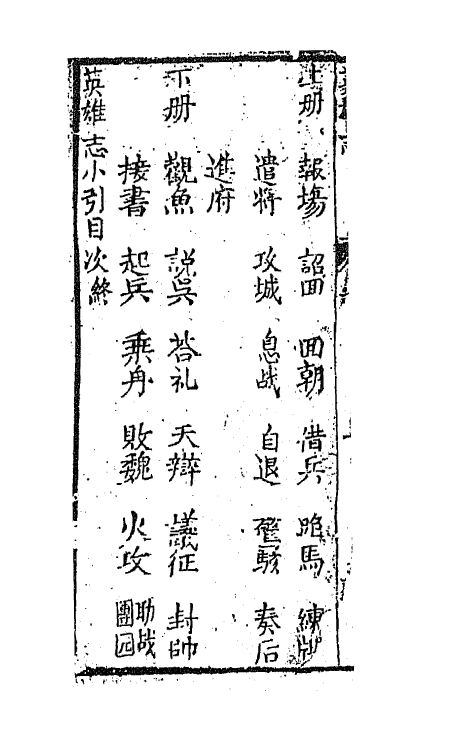 上册 報場 詔囬 囬朝 借兵 跑馬 練
遣将 攻城 息战 自退 駭 奏后
進府
下册 觀魚 説吳 荅礼 天辯 議征 封帥
接書 起兵 乘舟 敗魏 火攻 助战 團圓
英雄志小引目次終